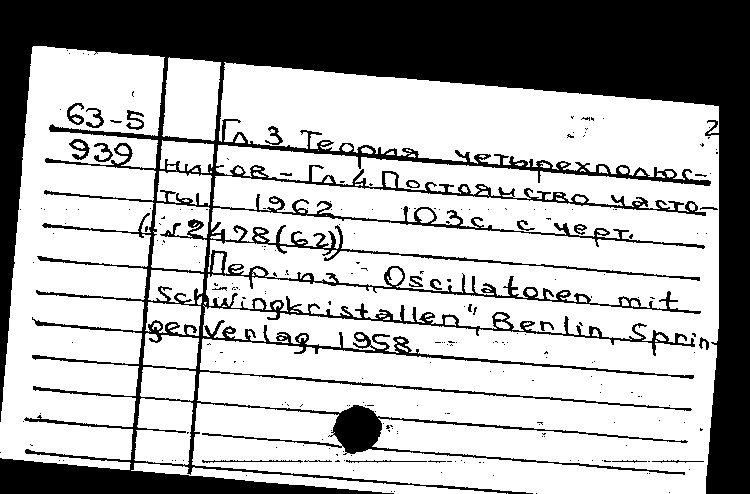 2
63-5
939
Гл. 3. Теория четырехполюс-
ников. - Гл. 4. Постоянство часто-
ты. 1962. 103 с. с черт.
2478(62)
Пер. из „Oscillatoren mit
Schwingkristallen", Berlin, Sprin-
gerVerlag, 1958.